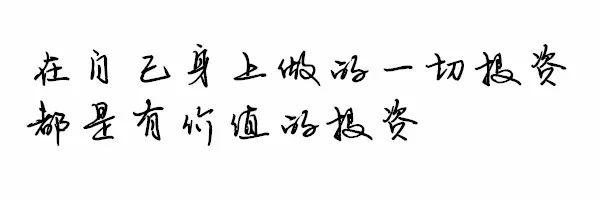 在自己身上做的一切投资
都是有价值的投资